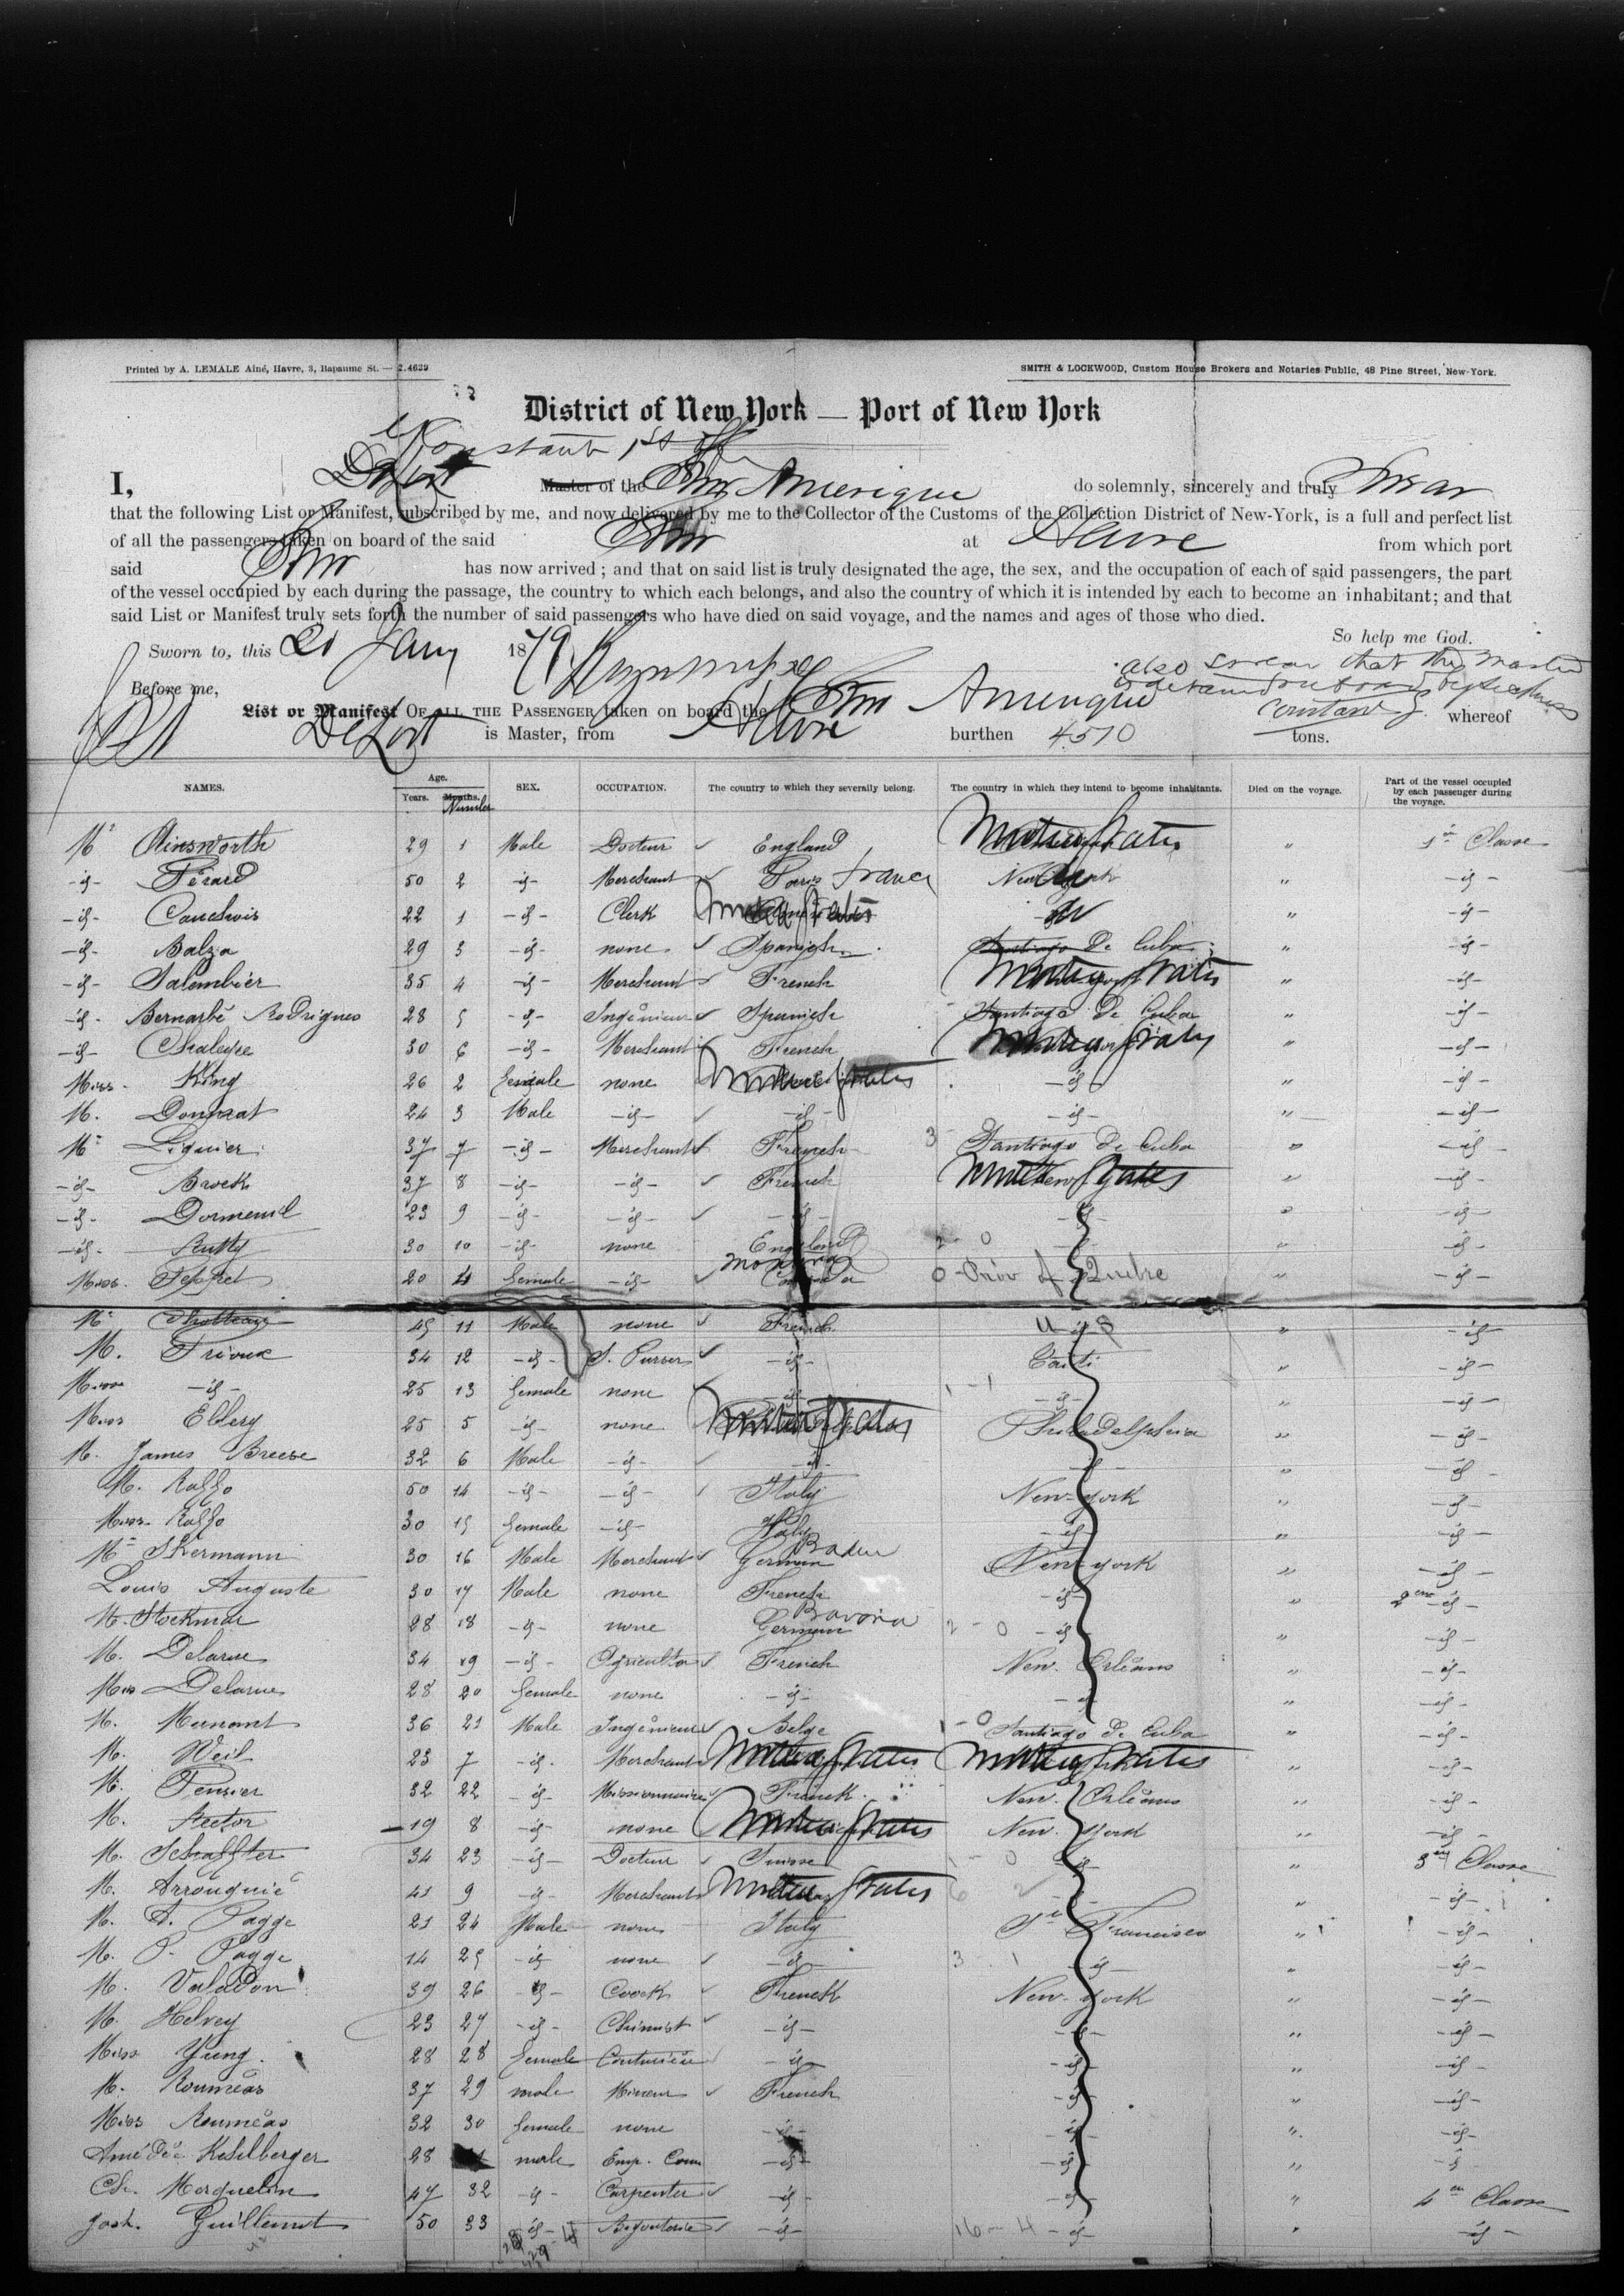 Printed by A. LEMALE Aîné, Havre, 3, Bapaume St. — 2.4629
SMITH & LOCKWOOD, Custom House Brokers and Notaries Public, 48 Pine Street, New-York.
District of New York — Port of New York
Constant 1st Off
I, DeLort Master of the Str Amerique do solemnly, sincerely and truly Swear
that the following List or Manifest, subscribed by me, and now delivered by me to the Collector of the Customs of the Collection District of New-York, is a full and perfect list
of all the passengers taken on board of the said Str at Havre from which port
said Str has now arrived ; and that on said list is truly designated the age, the sex, and the occupation of each of said passengers, the part
of the vessel occupied by each during the passage, the country to which each belongs, and also the country of which it is intended by each to become an inhabitant; and that
said List or Manifest truly sets forth the number of said passengers who have died on said voyage, and the names and ages of those who died.
So help me God.
Sworn to, this 21 Jany 1879
also swear that the master
is detained on board by sickness
Constant
Before me,
List or Manifest OF ALL THE PASSENGER taken on board the Str Amerique whereof
DeLort is Master, from Havre burthen 4510 tons.
NAMES. Age. Years. Months. Number SEX. OCCUPATION. The country to which they severally belong. The country in which they intend to become inhabitants. Died on the voyage. Part of the vessel occupied by each passenger during the voyage.
Mr Ainsworth 29 1 Male Docteur England United States " 1re Classe
-id- Pérard 50 2 -id- Merchant Paris France New York " -id-
-id- Cauchois 22 1 -id- Clerk United States " -id-
-id- Balza 29 3 -id- none Spanish Santiago De Cuba " -id-
-id- Salembier 35 4 -id- Merchant French United States " -id-
-id- Bernarbé Rodrigues 28 5 -id- Ingénieur Spanish Santiago De Cuba " -id-
-id- Chaleyre 30 6 -id- Merchant French United States " -id-
Miss King 26 2 female none United States -id- " -id-
M. Donzat 24 3 Male -id- -id- -id- " -id-
Mr Liquier 37 7 -id- Merchant French Santiago De Cuba " -id-
-id- Brock 37 8 -id- -id- French United States " -id-
-id- Dormeuil 23 9 -id- -id- -id- -id- " -id-
-id- Rutty 30 10 -id- none England " -id-
Miss Teffret 20 4 female -id- Canada Prov of Quebec " -id-
Mr 45 11 Male none French U S " -id-
M. Frioux 34 12 -id- S. Purser -id- " -id-
-id- 25 13 female none -id- -id- " -id-
Ellery 25 5 -id- none United States Philadelphia " -id-
M. James Breese 32 6 Male -id- -id- -id- " -id-
M. Raffo 50 14 -id- -id- Italy New-York " -id-
Raffo 30 15 female -id- Italy -id- " -id-
Mr Skermann 30 16 Male Merchant German Baden New-York " -id-
Louis Auguste 30 17 Male none French -id- " 2eme -id-
M. Stockmar 28 18 -id- none German Bavaria 2 - 0 -id- " -id-
M. Delarue 34 19 -id- Agriculter French New. Orléans " -id-
Delarue 28 20 female none -id- -id- " -id-
M. Munant 36 21 Male Ingénieur Belge 1 - 0 Santiago de Cuba " -id-
M. Weil 23 7 -id- Merchant United States United States " -id-
M. Tensier 32 22 -id- Missionnaire French New. Orléans " -id-
M. Rector 19 8 -id- none United States New. York " -id-
M. Schaffter 34 23 -id- Docteur Suisse -id- " 3eme Classe
M. Arrouquié 41 9 -id- Merchant United States -id- " -id-
M. A. Pagge 21 24 Male none Italy Sn Francisco " -id-
M. P. Pagge 14 25 -id- none -id- -id- " -id-
M. Valadon 39 26 -id- Coock French New-York " -id-
M. Helvey 23 27 -id- Chimist -id- -id- " -id-
Miss Yung 28 28 female Couturière -id- -id- " -id-
M. Rouméas 37 29 male Mineur French -id- " -id-
Rouméas 32 30 female none -id- -id- " -id-
Amédée Keselberger 28 male Emp. Com -id- -id- " -id-
Ch. Morquelin 47 32 -id- Carpenter -id- -id- " 4me Classe
Josh. Guillemot 50 33 -id- Bijouterie -id- -id- " -id-